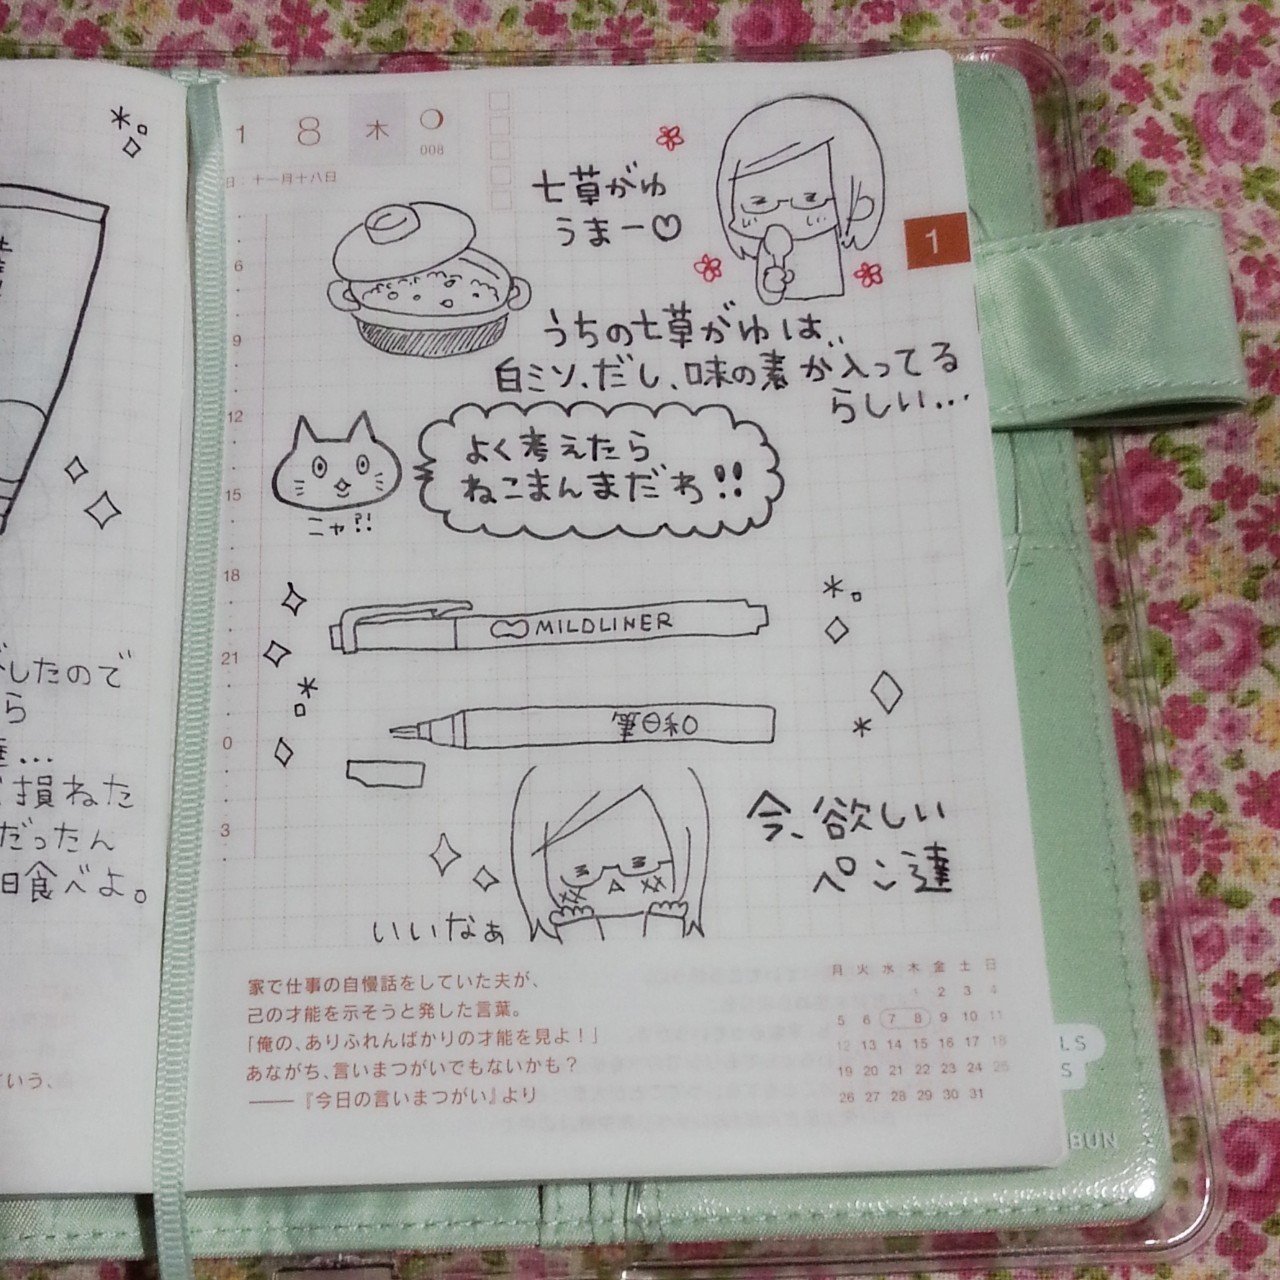 したので
ら
損ねた
だったん
食べよ。
1 8 木
008
十一月十八日
七草がゆ
うまー♡
1
うちの七草がゆは、、
白ミソ、だし、味の素が入ってる
らしい…
よく考えたら
ねこまんまだわ!!
ニャ?!
6
9
12
15
18
21
0
3
MILDLINER
筆日和
今、欲しい
ペン達
いいなぁ
家で仕事の自慢話をしていた夫が、
己の才能を示そうと発した言葉。
「俺の、ありふれんばかりの才能を見よ！」
あながち、言いまつがいでもないかも？
——『今日の言いまつがい』より
月 火 水 木 金 土 日
1 2 3 4
5 6 7 8 9 10 11
12 13 14 15 16 17 18
19 20 21 22 23 24 25
26 27 28 29 30 31
LS
S
BUN